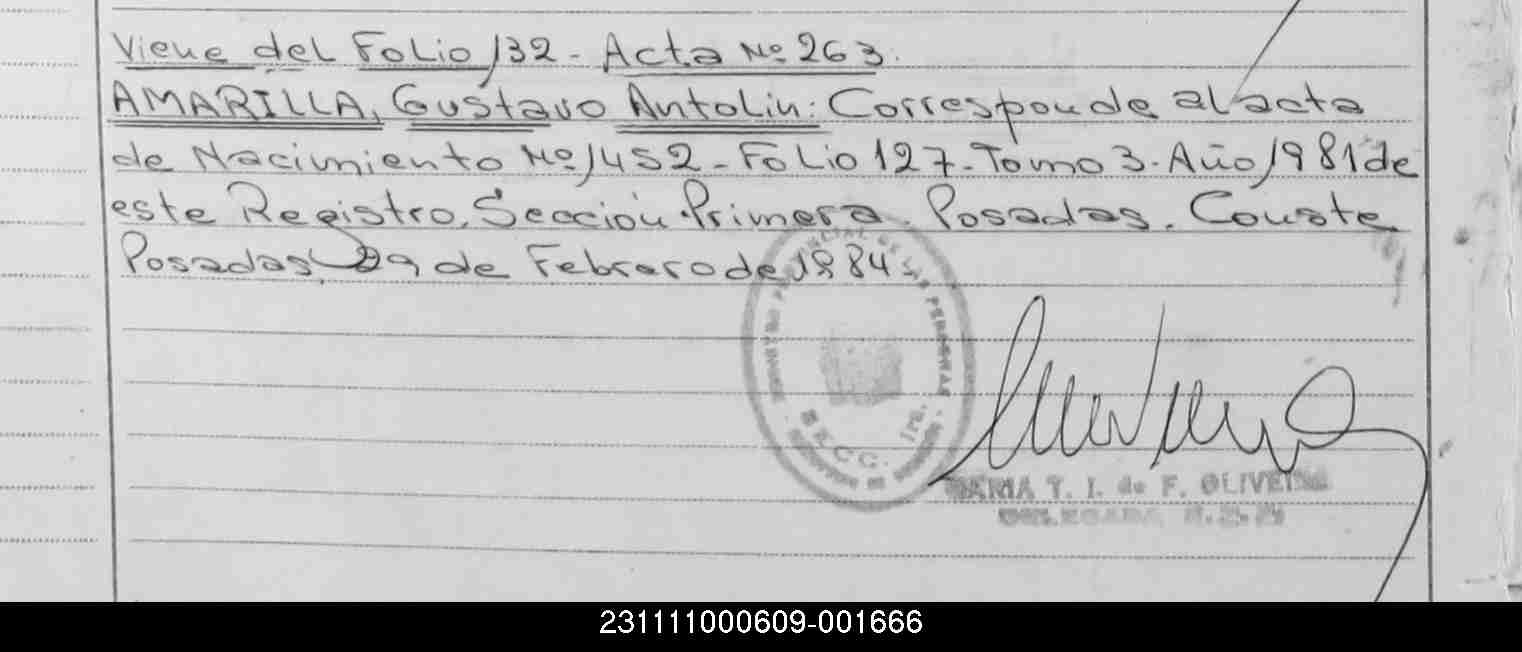 Viene del Folio 132 - Acta Nº 263.
AMARILLA, Gustavo Antolin: Corresponde al acta
de Nacimiento Nº 1452 - Folio 127 - Tomo 3 - Año 1981 de
este Registro, Sección Primera. Posadas. Conste
Posadas 29 de Febrero de 1984.
REGISTRO PROVINCIAL DE LAS PERSONAS
SECC. 1ra.
MARIA T. I. de F. OLIVEIRA
DELEGADA
231111000609-001666